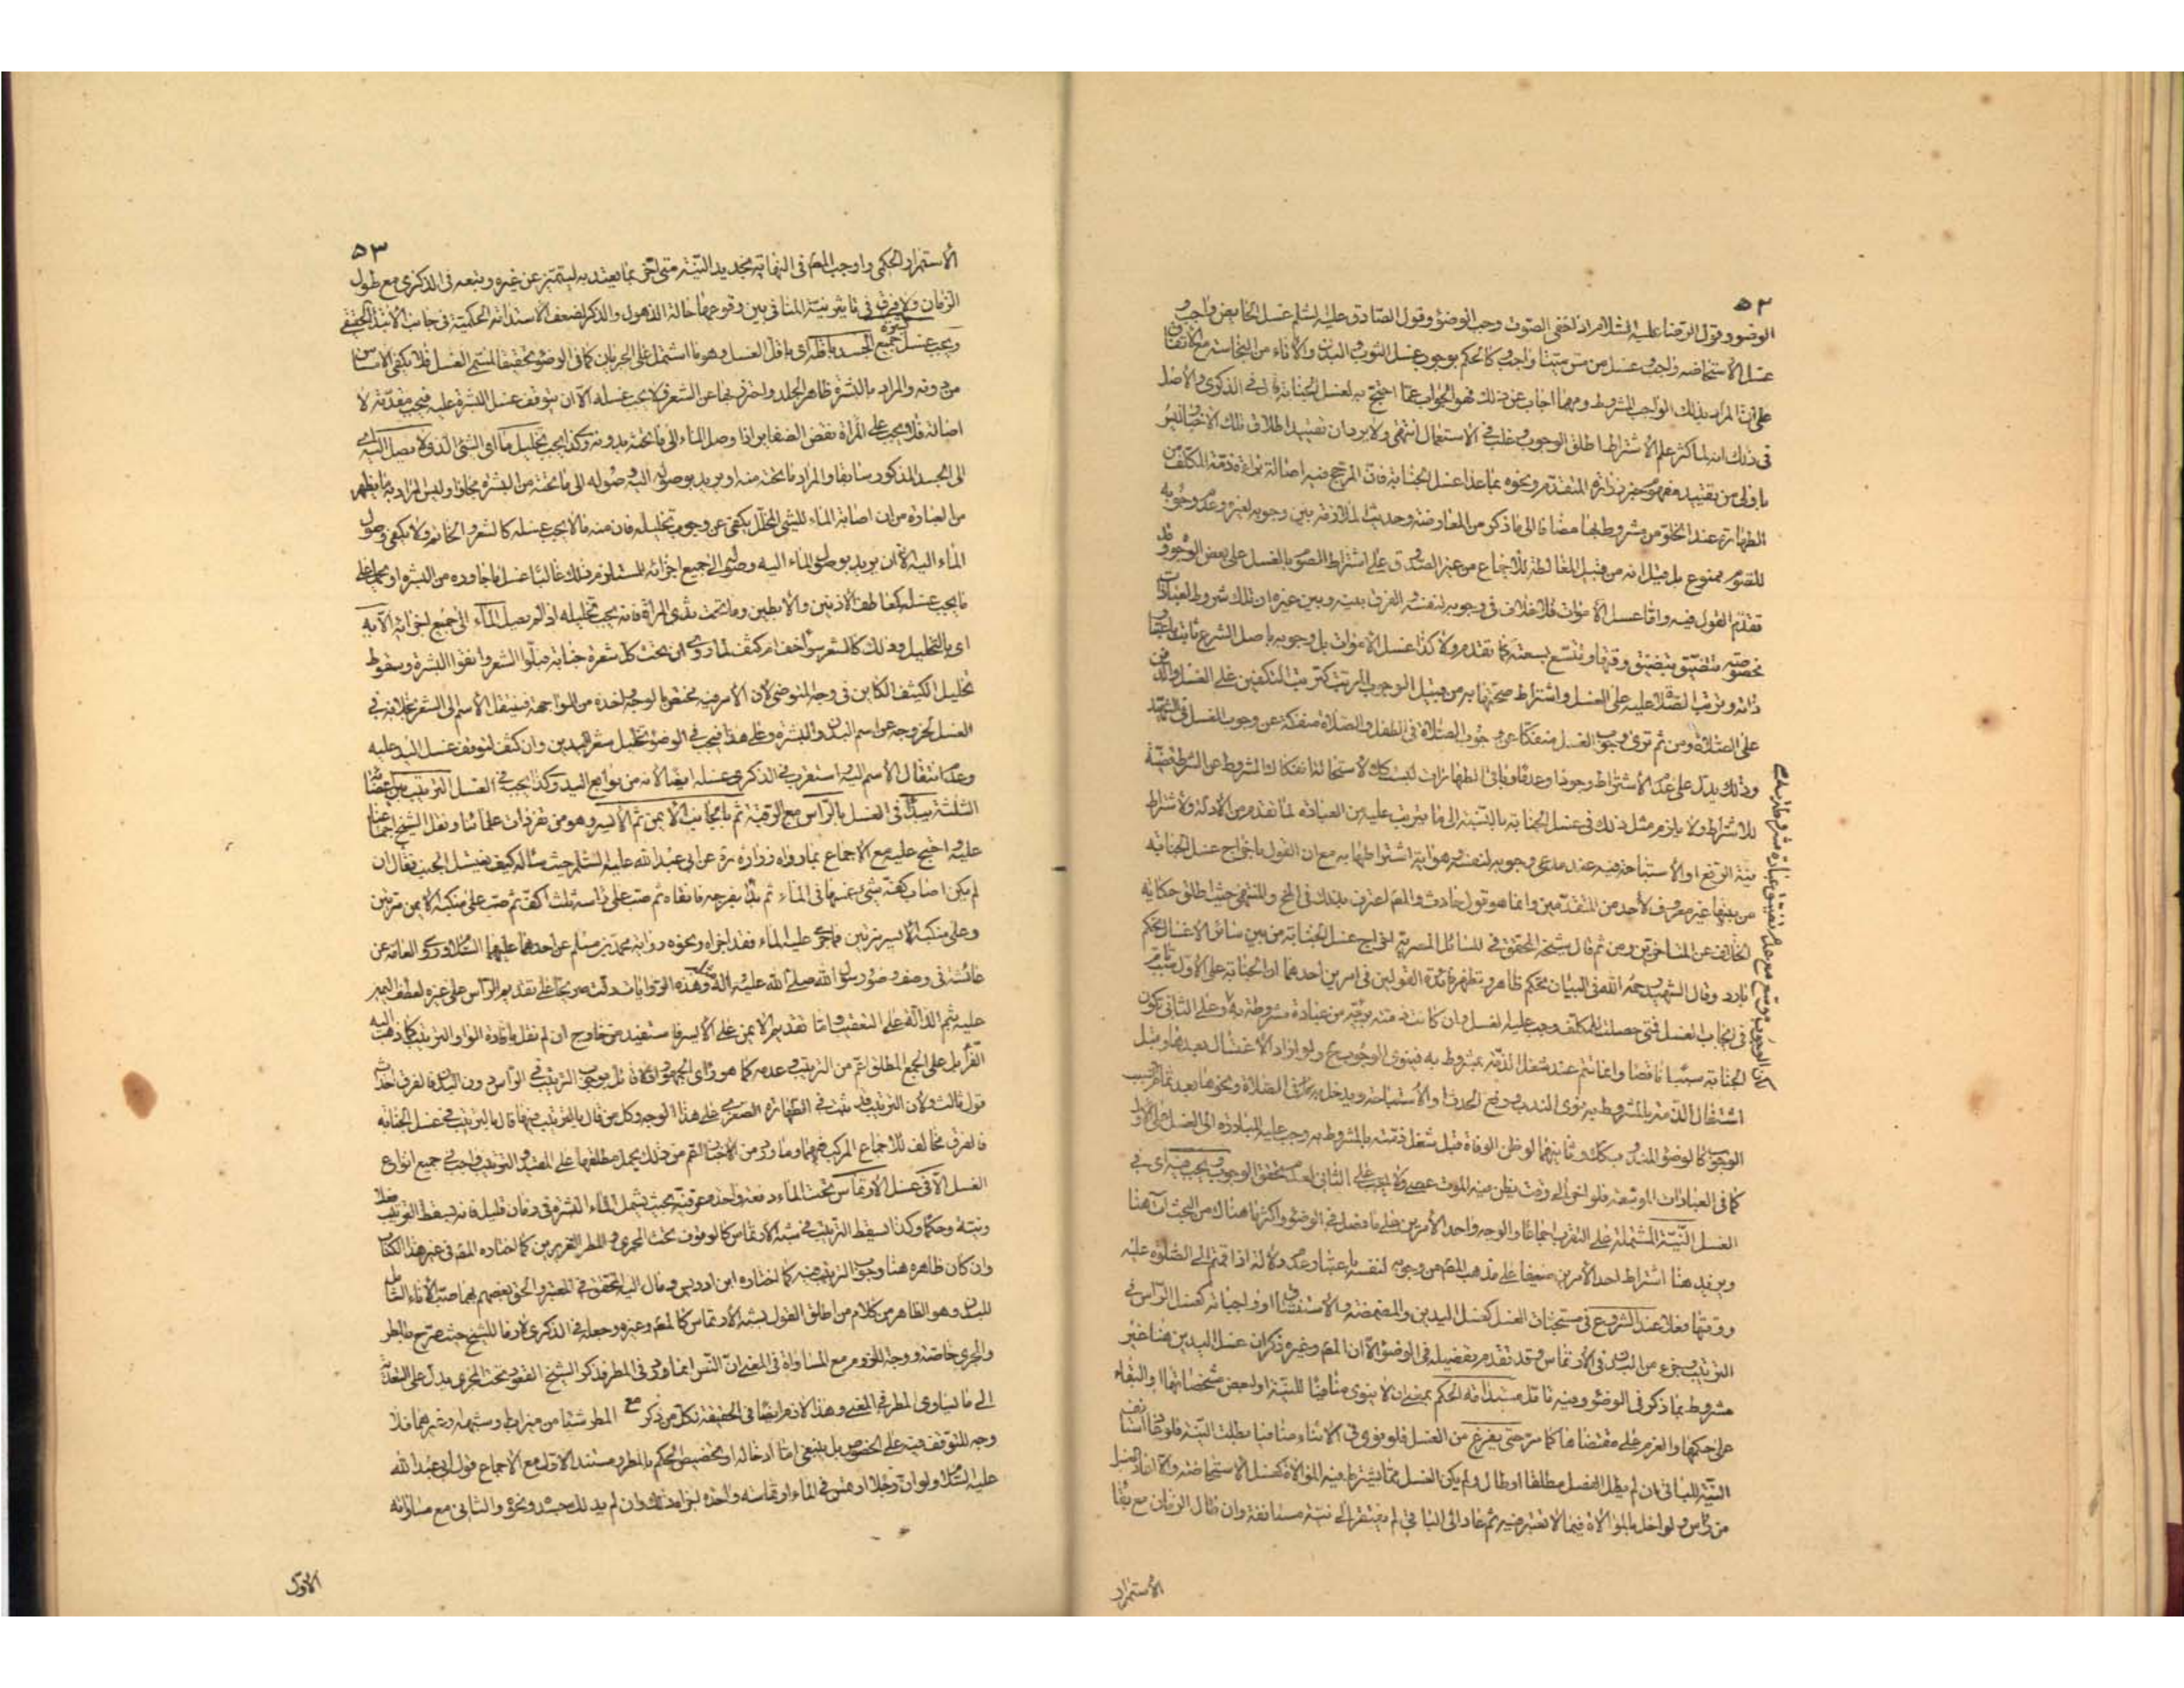 ٥٢
الوضوء وقول الرضا عليه السلام اذا خفى الصوت وجب الوضوء وقول الصادق عليه السلم غسل الحايض واجب و
غسل الاستحاضه واجب وغسل من مس ميتا واجب كالحكم بوجوب غسل الثوب والبدن والاناء من النجاسة مع الاتفاق
على ان المراد بذلك الواجب المشروط ومهما اجاب عن ذلك فهو الجواب عما احتج به لغسل الجنابة قال في الذكرى والاصل
في ذلك انه لما كثر علم الاشتراط اطلق الوجوب وغلب في الاستعمال انتهى ولا يرد ان تقييد اطلاق تلك الاخبار ليس
باولى من تقييد مفهوم خبر زرارة المتقدم ونحوه بما عدا غسل الجنابة فان المرجح فيه اصالة براءة ذمة المكلف من
الطهارة عند الخلو من مشروط بها مضافا الى ما ذكر من المعارضة وحديث الملازمة بين وجوبه لغيره وعدم وجوبه
للصوم ممنوع بل قيل انه من قبيل المغالطة للاجماع من غير الصدوق على اشتراط الصوم بالغسل على بعض الوجوه وقد
تقدم القول فيه واما غسل الاموات فلا خلاف في وجوبه لنفسه والفرق بينه وبين غيره ان تلك شروط لعبادات
مخصوصة يتضيق بتضيق وقتها ويتسع بسعته كما تقدم ولا كذا غسل الاموات بل وجوبه باصل الشرع ثابت باعتبار
ذاته وترتب الصلاة عليه على الغسل واشتراط صحتها به من قبيل الوجوب المرتب كترتب التكفين على الغسل والدفن
على الصلاة ومن ثم ترى وجوب الغسل منفكا عن وجوب الصلاة في الطفل والصلاة منفكة عن وجوب الغسل في الشهيد
وذلك يدل على عدم الاشتراط وجودا وعدما وباقي الطهارات ليست كك لاستحالة انفكاك المشروط عن الشرط قضية
للاشتراط ولا يلزم مثل ذلك في غسل الجنابة بالنسبة الى ما يترتب عليه من العبادة لما تقدم من الادلة ولاشتراط
نية الرفع او الاستباحة فيه عند مدعى وجوبه لنفسه وهو اية اشتراطها به مع ان القول باخراج غسل الجنابة
من بينها غير معروف لاحد من المتقدمين وانما هو قول حادث والمص اعترف بذلك في المخ والمنتهى حيث اطلق حكاية
الخلاف عن المتاخرين ومن ثم قال شيخه المحقق في المسائل المصرية اخراج غسل الجنابة من بين سائر الاغسال تحكم
بارد وقال الشهيد رحمه الله في البيان تحكم ظاهر وتظهر فائدة القولين في امرين احدهما ان الجنابة على الاول سبب تام
في ايجاب الغسل فمتى حصلت للمكلف وجب عليه الغسل وان كانت ذمته بريئة من عبادة مشروطة به وعلى الثاني تكون
الجنابة سببا ناقصا وانما تتم عند شغل الذمة بمشروط به فينوى الوجوب ح ولو اراد الاغتسال بعدها وقبل
اشتغال الذمة بالمشروط به نوى الندب ورفع الحدث او الاستباحة ويدخل به في الصلاة ونحوها بعد تمام سبب
الوجوب كالوضوء المندوب كك وثانيهما لو ظن الوفاة قبل شغل ذمته بالمشروط به وجب عليه المبادرة الى الغسل على الاول
كما في العبادات الموسعة فلو اخر الى وقت يظن فيه الموت عصى ولا يجب على الثاني لعدم تحقق الوجوب ويجب فيه اى في
الغسل النية المشتملة على التقرب اجماعا والوجه واحد الامرين على ما فصل في الوضوء واكثرها هناك من البحث آت هنا
ويزيد هنا اشتراط احد الامرين ضعيفا على مذهب المص من وجوبه لنفسه باعتبار عدم دلالة اذا قمتم الى الصلوة عليه
ووقتها فعلا عند الشروع في مستحبات الغسل كغسل اليدين والمضمضة والاستنشاق او واجباته كغسل الراس في
الترتيب وجزء من البدن في الارتماس وقد تقدم تفصيله في الوضوء الا ان المص وغيره ذكر ان غسل اليدين هنا غير
مشروط بما ذكر في الوضوء وفيه تامل مستدامة الحكم بمعنى ان لا ينوى منافيا للنية او لبعض مشخصاتها والبقاء
على حكمها والعزم على مقتضاها كما مر حتى يفرغ من الغسل فلو نوى في الاثناء منافيا بطلت النية فلو عاد استانف
النية للباقى ان لم يطل الفصل مطلقا او طال ولم يكن الغسل مما يشترط فيه الموالاة كغسل الاستحاضة والا اعاد الغسل
من راس ولو اخل بالموالاة فيما لا تعتبر فيه ثم عاد الى الباقي لم يفتقر الى نية مستانفة وان طال الزمان مع بقاء
الاستمرار
كان الوجوب موسع مع عدم تضيق عبادة مشروطة به
٥٣
الاستمرار الحكمى واوجب المص في النهاية تجديد النية متى اخر بما يعتد به ليتميز عن غيره وتبعه في الذكرى مع طول
الزمان ولا فرق في تاثير نية المنافى بين وقوعها حالة الذهول والذكر لضعف الاستدامة الحكمية في جانب الابتداء الحقيقي
ويجب غسل جميع بشرة الجسد باقله اى باقل الغسل وهو ما اشتمل على الجريان كما في الوضوء تحقيقا لمسمى الغسل فلا يكفى الامساس
من دونه والمراد بالبشرة ظاهر الجلد واحترز بها عن الشعر فلا يجب غسله الا ان يتوقف غسل البشرة عليه فيجب مقدمة لا
اصالة فلا يجب على المراة نقض الضفاير اذا وصل الماء الى ما تحته بدونه وكذا يجب تخليل ما اى الشئ الذى لا يصل اليه اى
الى الجسد المذكور سابقا والمراد ما تحته منه او يريد بوصوله اليه وصوله الى ما تحته من البشرة مجازا وليس المراد به ما يظهر
من العبارة من ان اصابة الماء للشئ المخلل يكفى عن وجوب تخليله فان منه ما لا يجب غسله كالشعر والخاتم ولا يكفى وصول
الماء اليه الا ان يريد بوصول الماء اليه وصوله الى جميع اجزائه المستلزم ذلك غالبا غسل ما جاوره من البشرة او يحمل على
ما يجب غسله كمعاطف الاذنين والابطين وما تحت ثدى المراة فانه يجب تخليله اذا لم يصل الماء الى جميع اجزائه الا به
اى بالتخليل وذلك كالشعر سواء خف ام كثف لما روى ان تحت كل شعرة جنابة فبلوا الشعر وانقوا البشرة وسقوط
تخليل الكثيف الكاين في وجه المتوضى لان الامر فيه مختص بالوجه اخذه من المواجهة فينتقل الاسم الى الشعر بخلافه في
الغسل لخروجه عن اسم البدن والبشرة وعلى هذا فيجب في الوضوء تخليل شعر اليدين وان كثف لتوقف غسل اليد عليه
وعدم انتقال الاسم اليه واستقرب في الذكرى غسله ايضا لانه من توابع اليد وكذا يجب في الغسل الترتيب بين اعضائه
الثلثة يبدأ في الغسل بالراس مع الرقبة ثم بالجانب الايمن ثم الايسر وهو من تفردات علمائنا ونقل الشيخ اجماعنا
عليه واحتج عليه مع الاجماع بما رواه زرارة عن ابي عبد الله عليه السلم حيث ساله كيف يغتسل الجنب فقال ان
لم يكن اصاب كفه شئ غمسها في الماء ثم بدا بفرجه فانقاه ثم صب على راسه ثلث اكف ثم صب على منكبه الايمن مرتين
وعلى منكبه الايسر مرتين فما جرى عليه الماء فقد اجزاه ونحوه رواية محمد بن مسلم عن احدهما عليهما السلام وروى العامة عن
عائشة في وصف وضوء رسول الله صلى الله عليه وآله وهذه الروايات دلت صريحا على تقديم الراس على غيره لعطف اليمين
عليه بثم الدالة على التعقيب واما تقديم الايمن على الايسر فاستفيد من خارج ان لم نقل بافادة الواو الترتيب كما ذهب اليه
الفراء بل على الجمع المطلق اعم من الترتيب وعدمه كما هو راى الجمهور اذ لا قائل بوجوب الترتيب في الراس دون البدن فالفرق احداث
قول ثالث ولان الترتيب قد ثبت في الطهارة الصغرى على هذا الوجه وكل من قال بالترتيب فيها قال بالترتيب في غسل الجنابة
فالفرق مخالف للاجماع المركب فيهما وما ورد من الاخبار اعم من ذلك يحمل مطلقها على المقيد والترتيب واجب في جميع انواع
الغسل الا في غسل الارتماس تحت الماء دفعة واحدة عرفية بحيث يشمل الماء البشرة في زمان قليل فانه يسقط الترتيب فعلا
ونية وحكما وكذا يسقط الترتيب في شبه الارتماس كالوقوف تحت المجرى والمطر الغزيرين كما اختاره المص في غير هذا الكتاب
وان كان ظاهره هنا وجوب الترتيب فيه كما اختاره ابن ادريس ومال اليه المحقق في المعتبر والحق بعضهم بهما صب الاناء الشامل
للبدن وهو الظاهر من كلام من اطلق القول بشبه الارتماس كالمص وغيره وجعله في الذكرى لازما للشيخ حيث صرح بالمطر
والمجرى خاصة ووجه اللزوم مع المساواة في المعنى ان النص انما ورد في المطر فذكر الشيخ القعود تحت المجرى يدل على التعدية
الى ما يساوى المطر في المعنى وهذا لازم ايضا في الحقيقة لكل من ذكر مع المطر شيئا من ميزاب وشبهه وغيرهما فلا
وجه للتوقف فيه على الخصوص بل ينبغى اما ادخاله او تخصيص الحكم بالمطر ومستند الاول مع الاجماع قول ابى عبد الله
عليه السلام ولو ان رجلا ارتمس في الماء ارتماسة واحدة اجزاه ذلك وان لم يدلك جسده ونحوه والثاني مع مساواته
الاول